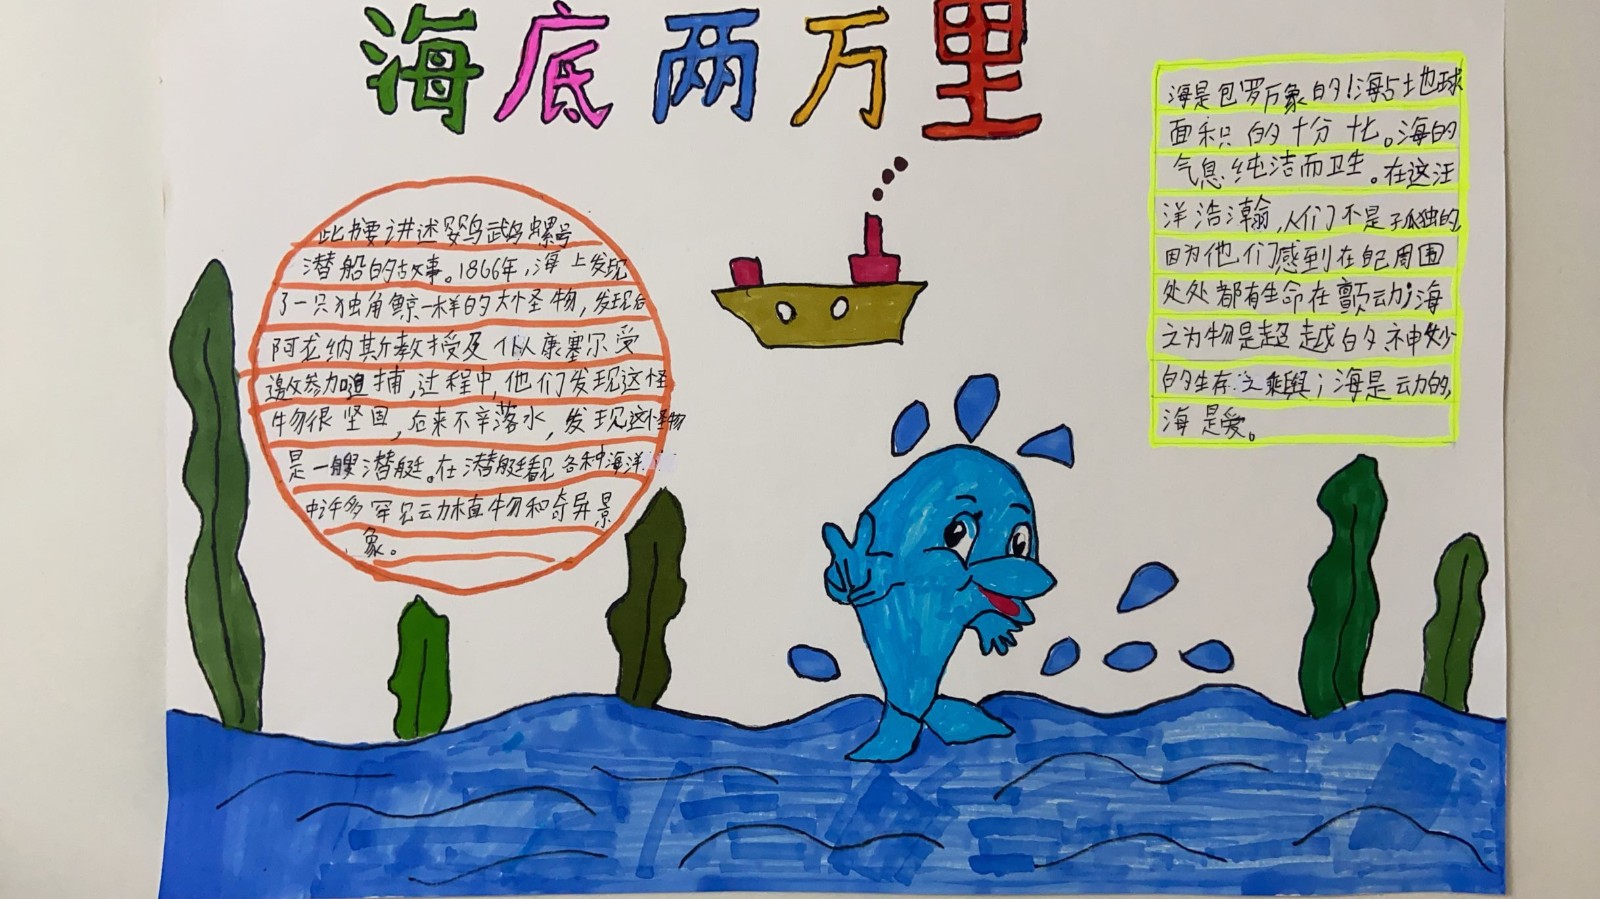 海底两万里
此书要讲述鹦鹉螺号
潜船的故事。1866年,海上发现
了一只独角鲸一样的大怪物,发现后
阿龙纳斯教授及仆从康塞尔受
邀参加追捕,过程中,他们发现这怪
物很坚固,后来不幸落水,发现这怪物
是一艘潜艇。在潜艇看见各种海洋
中许多罕见动植物和奇异景
象。
海是包罗万象的!海占地球
面积的十分七。海的
气息纯洁而卫生。在这汪
洋浩瀚,人们不是孤独的,
因为他们感到在自己周围
处处都有生命在颤动;海
之为物是超越的神妙
的生存之乘舆;海是动的,
海是爱。